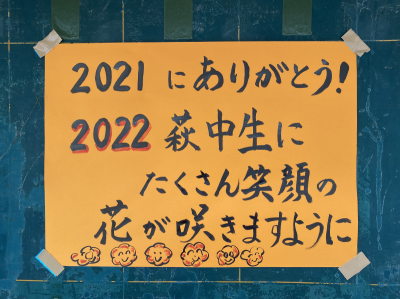 2021 にありがとう!
2022 萩中生に
たくさん笑顔の
花が咲きますように